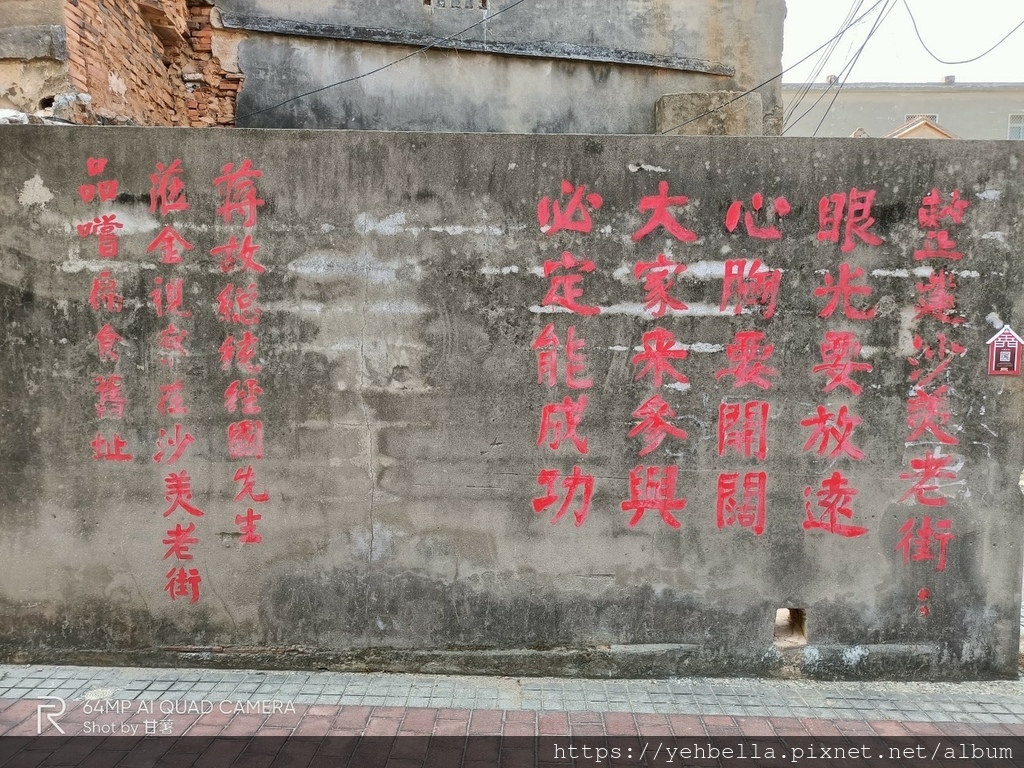 整建沙美老街：
眼光要放遠
心胸要開闊
大家來參與
必定能成功
蔣故總統經國先生
蒞金視察在沙美老街
品嚐扁食舊址
R 64MP AI QUAD CAMERA
Shot by 甘薯
https://yehbella.pixnet.net/album